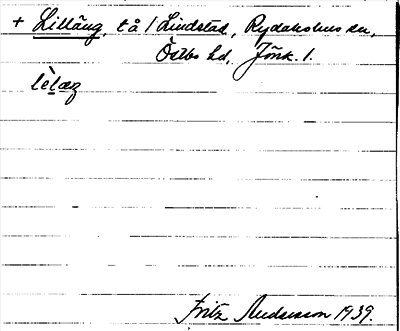 + Lilläng, t å 1 Lindstad, Rydaholms sn,
Östbo hd, Jönk. l.
lèlæg
Fritz Andersson 1939.